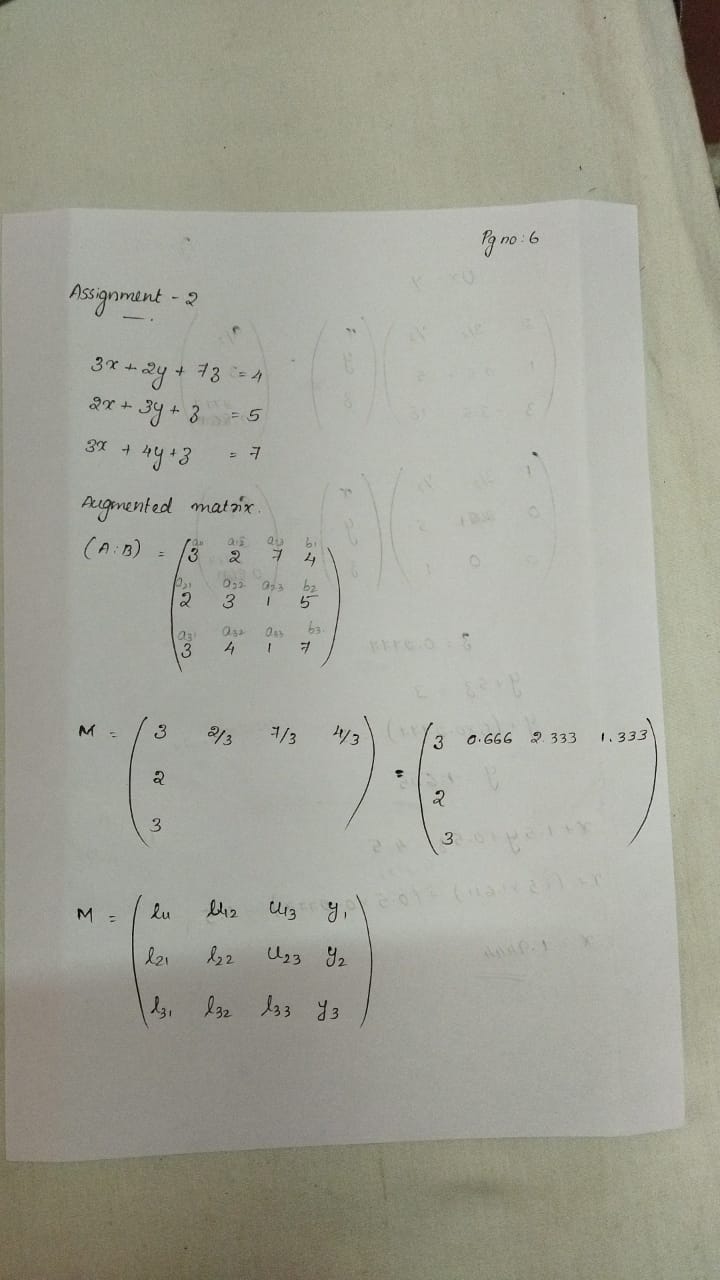 Pg no: 6
Assignment - 2
3x + 2y + 7z = 4
2x + 3y + z = 5
3x + 4y + z = 7
Augmented matrix.
a11 a12 a13 b1
(A:B) = 3 2 7 4
a21 a22 a23 b2
2 3 1 5
a31 a32 a33 b3
3 4 1 7
M = 3 2/3 7/3 4/3 = 3 0.666 2.333 1.333
2 2
3 3
M = l11 u12 u13 y1
l21 l22 u23 y2
l31 l32 l33 y3